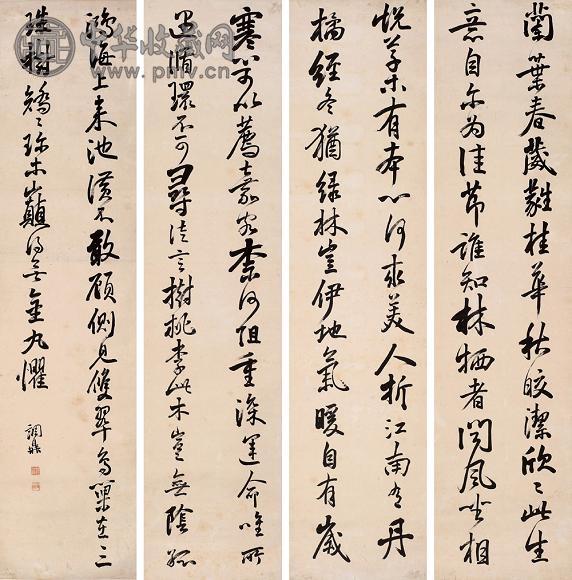 蘭葉春葳蕤桂華秋皎潔欣〻此生
意自尔为佳節誰知林栖者聞風坐相
悦草木有本心何求美人折江南有丹
橘經冬猶緑林豈伊地氣暖自有歲
寒心可以薦嘉客奈何阻重深運命唯所
遇循環不可尋徒言樹桃李此木豈無陰孤
鴻海上来池潢不敢顧側見雙翠鳥巢在三
珠樹矯〻珍木巔得無金丸懼
調鼎
中华收藏网